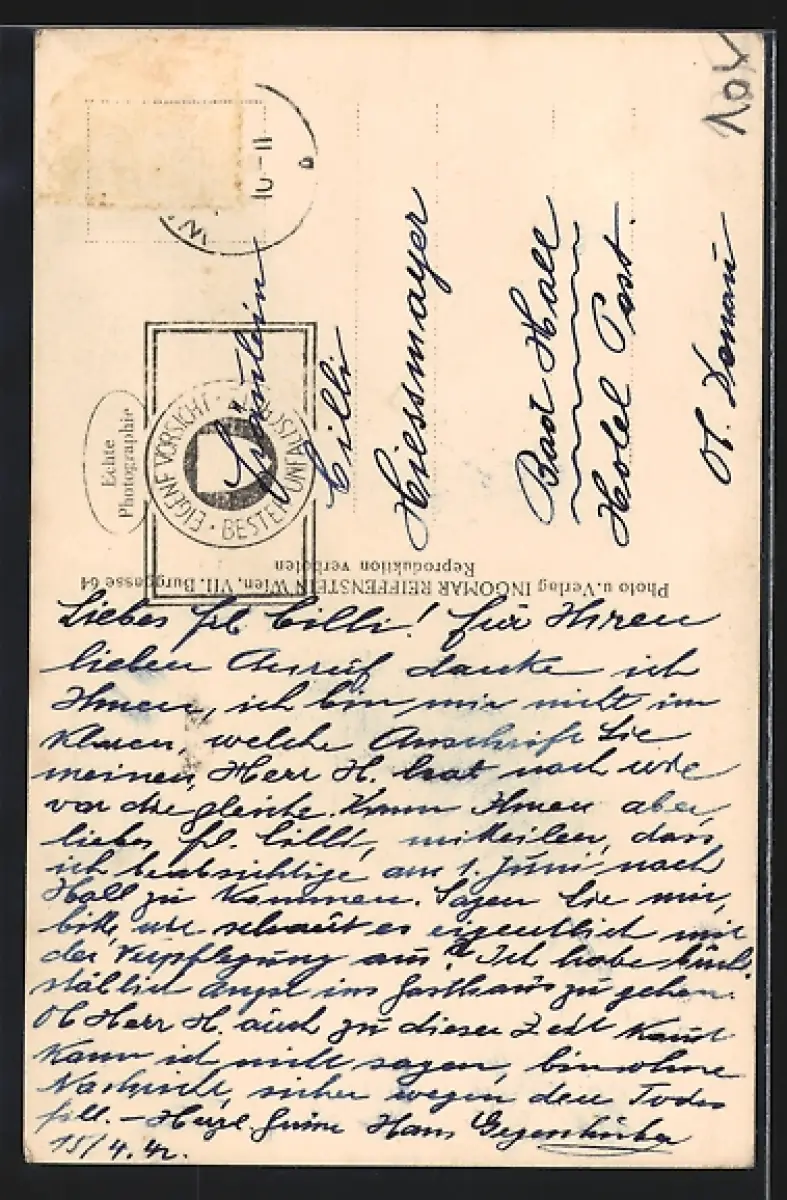 10V
W
10-11
b
Fräulein
Cilli
Hiessmayer
Bad Hall
Hotel Post
Ob. Donau
Echte
Photographie
EIGENE VORSICHT · BESTER UNFALLSCHUTZ ·
Photo u. Verlag INGOMAR REIFFENSTEIN Wien, VII. Burggasse 64
Reproduktion verboten
Liebes Frl. Cilli! für Ihren
lieben Anruf danke ich
Ihnen, ich bin mir nicht im
Klaren, welche Anschrift Sie
meinen, Herr H. hat nach wie
vor die gleiche. Kann Ihnen aber,
liebes Frl. Cilli, mitteilen, dass
ich beabsichtige am 1. Juni nach
Hall zu kommen. Sagen Sie mir,
bitte, wie schaut es eigentlich mit
der Verpflegung aus? Ich habe
Angst ins Gasthaus zu gehen.
Ob Herr H. auch zu dieser Zeit kommt
kann ich nicht sagen, bin ohne
Nachricht, sicher wegen den Todes
fall. – Herzl. Hans
15/4.42.